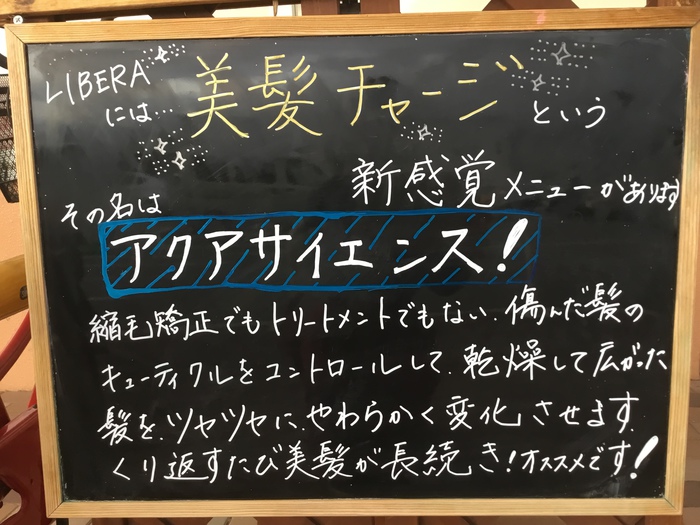 LIBERA
には… 美髪チャージ という
新感覚メニューがあります
その名は
アクアサイエンス!
縮毛矯正でもトリートメントでもない.傷んだ髪の
キューティクルをコントロールして.乾燥して広がった
髪を.ツヤツヤに.やわらかく変化させます.
くり返すたび美髪が長続き!オススメです!